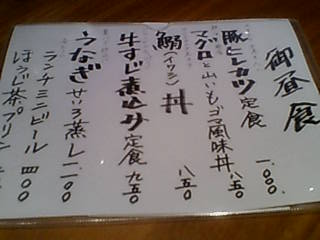 御昼食
豚ヒレカツ定食 一、〇〇〇
マグロと山いもゴマ風味丼 八五〇
鰯(イワシ)丼 八五〇
牛すじ煮込み定食 九五〇
うなぎせいろ蒸し 一、二〇〇
ランチミニビール 四〇〇
ほうじ茶プリン